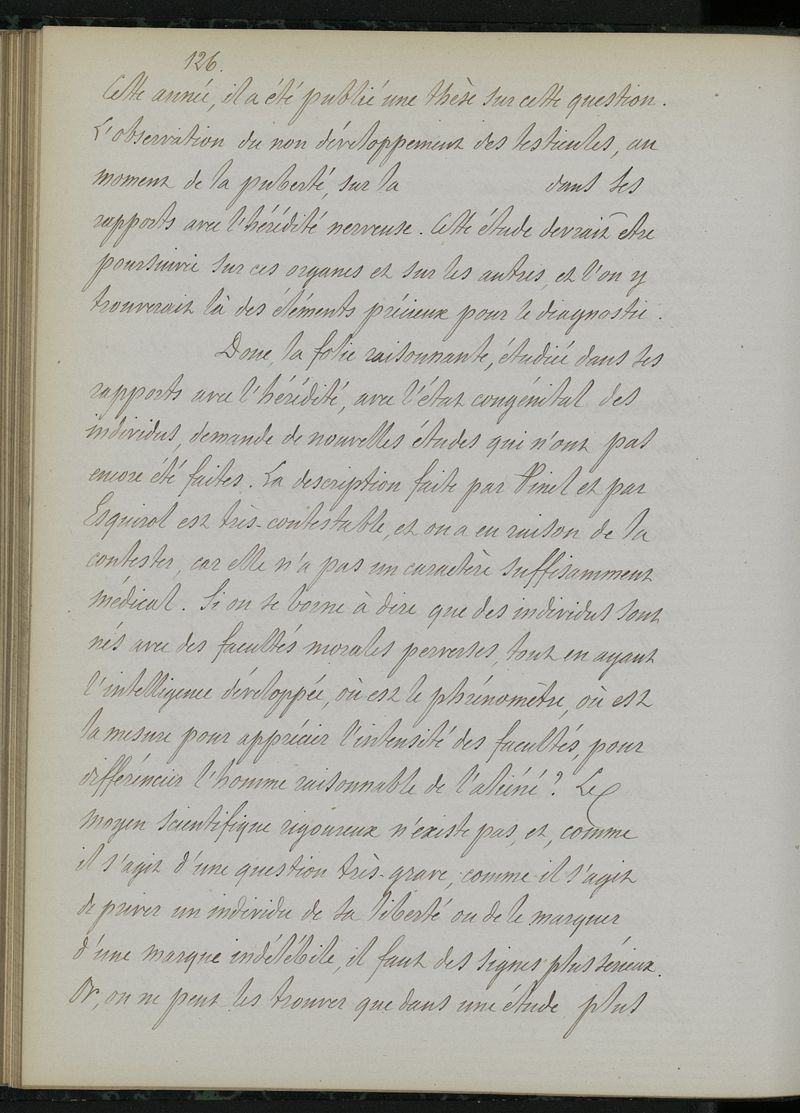 126.
Cette année, il a été publié une thèse sur cette question.
L'observation du non développement des testicules, au
moment de la puberté, sur la dans ses
rapports avec l'hérédité nerveuse. Cette étude devrait être
poursuivie sur ces organes et sur les autres, et l'on y
trouverait là des éléments précieux pour le diagnostic.
Donc, la folie raisonnante, étudiée dans ses
rapports avec l'hérédité, avec l'état congénital des
individus, demande de nouvelles études qui n'ont pas
encore été faites. La description faite par Pinel et par
Esquirol est très-contestable, et on a eu raison de la
contester, car elle n'a pas un caractère suffisamment
médical. Si on se borne à dire que des individus sont
nés avec des facultés morales perverses, tout en ayant
l'intelligence développée, où est le phrénomètre, où est
la mesure pour apprécier l'intensité des facultés, pour
différencier l'homme raisonnable de l'aliéné? Le
moyen scientifique rigoureux n'existe pas, et, comme
il s'agit d'une question très-grave, comme il s'agit
de priver un individu de sa liberté ou de le marquer
d'une marque indélébile, il faut des signes plus sérieux.
Or, on ne peut les trouver que dans une étude plus